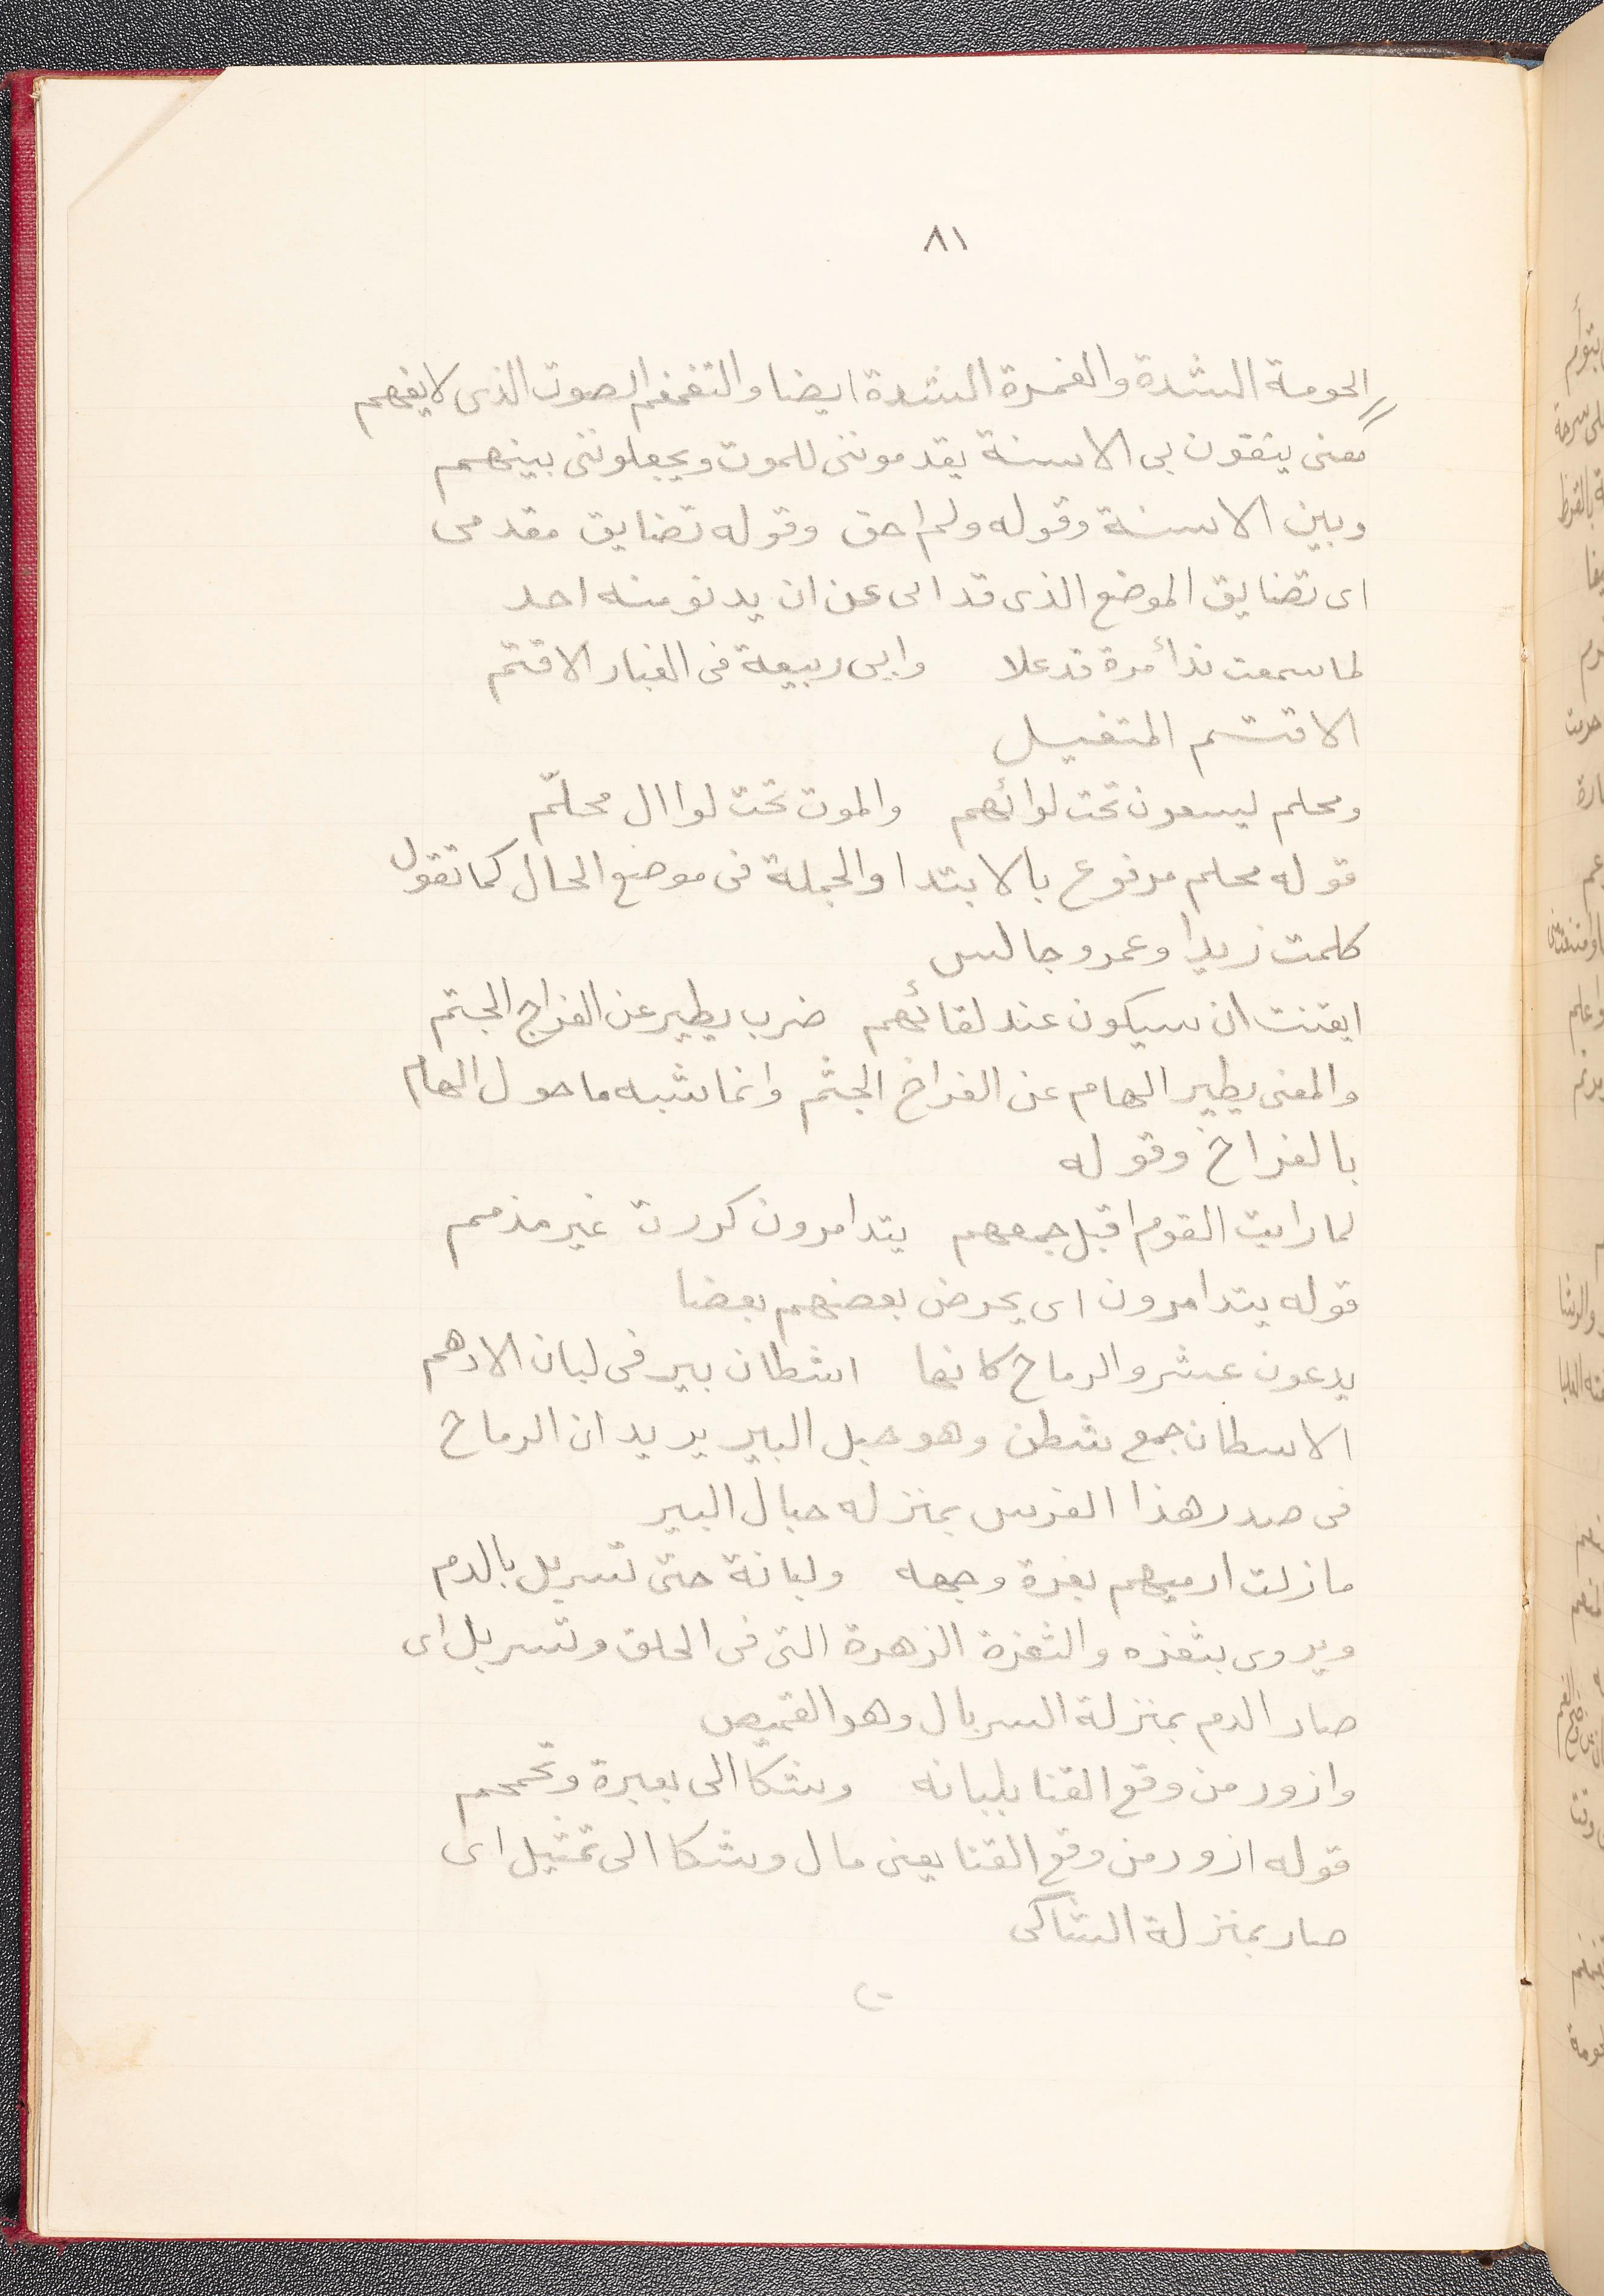 ٨١
الحومة الشدة والغمرة الشدة ايضا والتغمغم الصوت الذى لا يفهم
معنى يتقون بى الاسنة يقدموننى للموت ويجعلوننى بينهم
وبين الاسنة وقوله ولم احق وقوله تضايق مقدمى
اى تضايق الموضع الذى قدامى عن ان يدنو منه احد
لما سمعت ندأ مرة قد علا وابى ربيعة فى الغبار الاقتم
الاقتم المتغيل
ومحلم ليسعون تحت لوائهم والموت تحت لوا ال محلّم
قوله محلم مرفوع بالابتدا والجملة فى موضع الحال كما تقول
كلمت زيدا وعمرو جالس
ايقنت ان سيكون عند لقائهم ضرب يطير عن الفراخ الجثم
والمعنى يطير الهام عن الفراخ الجثم وانما شبه ما حول الهام
بالفراخ وقوله
لما رايت القوم اقبل جمعهم يتدامرون كررت غير مذمم
قوله يتدامرون اى يحرض بعضهم بعضا
يدعون عنتر والرماح كانها اشطان بير فى لبان الادهم
الاسطان جمع شطن وهو حبل البير يريد ان الرماح
فى صدر هذا الفرس بمنزله حبال البير
ما زلت ارميهم بغرة وجهه ولبانة حتى تسربل بالدم
ويروى بثغره والثغرة الزهرة التى فى الحلق وتسربل اى
صار الدم بمنزلة السربال وهو القميص
وازور من وقع القنا بلبانه وشكا الى بعبرة وتحمحم
قوله ازور من وقع القنا يعنى مال وشكا الى تمثيل اى
صار بمنزلة الشاكى